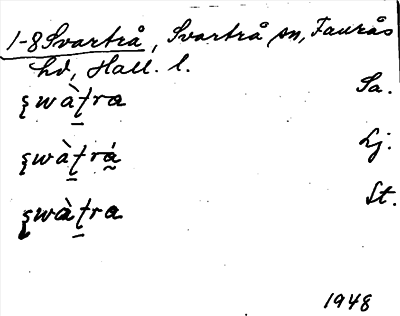 1-8 Svartrå, Svartrå sn, Faurås
hd, Hall. l.
ʂwàʈra Sa.
ʂwàʈrá̰ Lj.
ʂwàʈra St.
1948